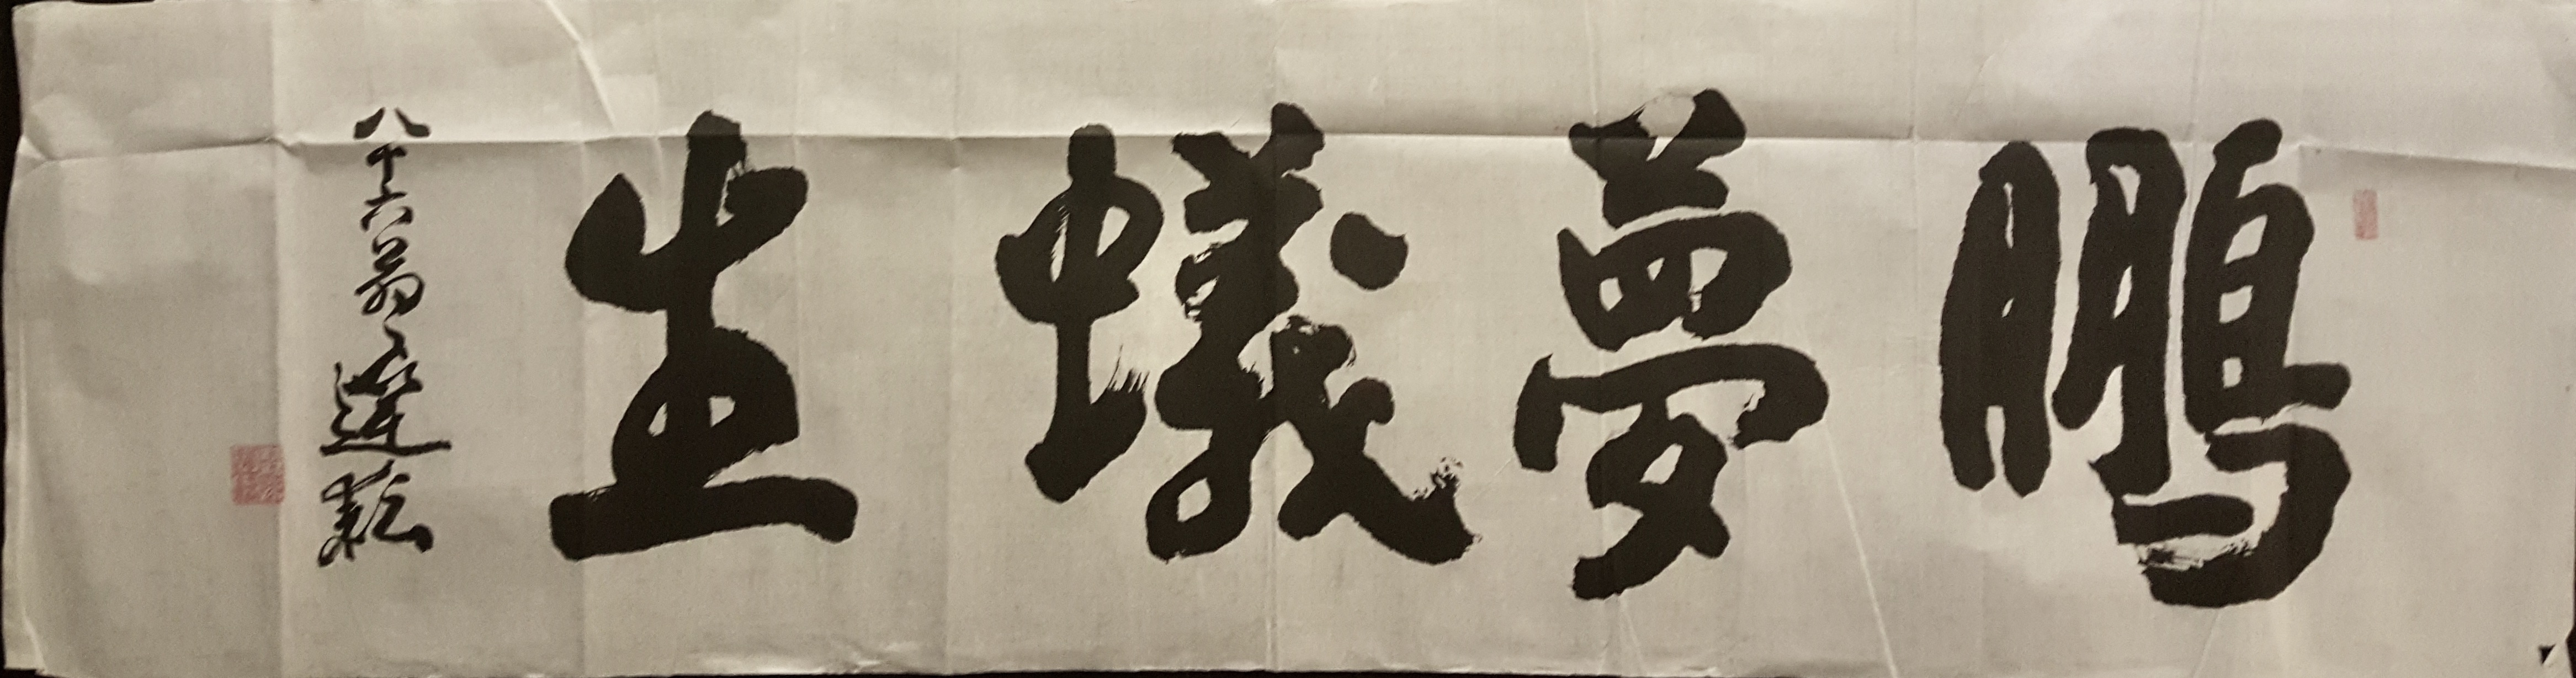 鵬夢蟻生
八十六翁蓮耘